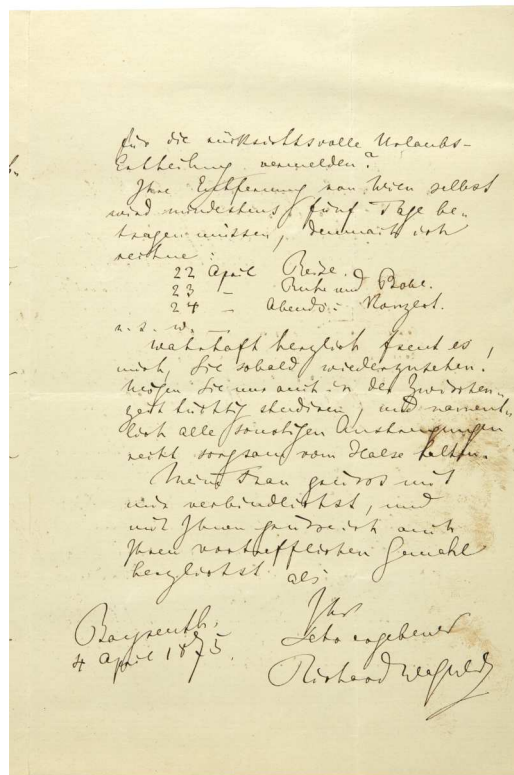 für die rücksichtsvolle Urlaubs-
Ertheilung vermelden?
Ihre Entfernung von Wien selbst
wird mindestens fünf Tage be-
tragen müssen, demnach ich
rechne:
22 April Reise.
23 – Ruhe und Probe.
24 – Abends: Konzert.
u. s. w. –
Wahrhaft herzlich freut es
mich, Sie sobald wiederzusehen.
Mögen Sie nur auch in der Zwischen-
zeit tüchtig studiren, und nament-
lich alle sonstigen Anstrengungen
recht sorgsam vom Halse halten.
Meine Frau grüsst mit
mir verbindlichst, und
mit Ihnen grüsse ich auch
Ihren vortrefflichen Gemahl
herzlichst als
Ihr
sehr ergebener
Richard Wagner
Bayreuth.
4 April 1875.